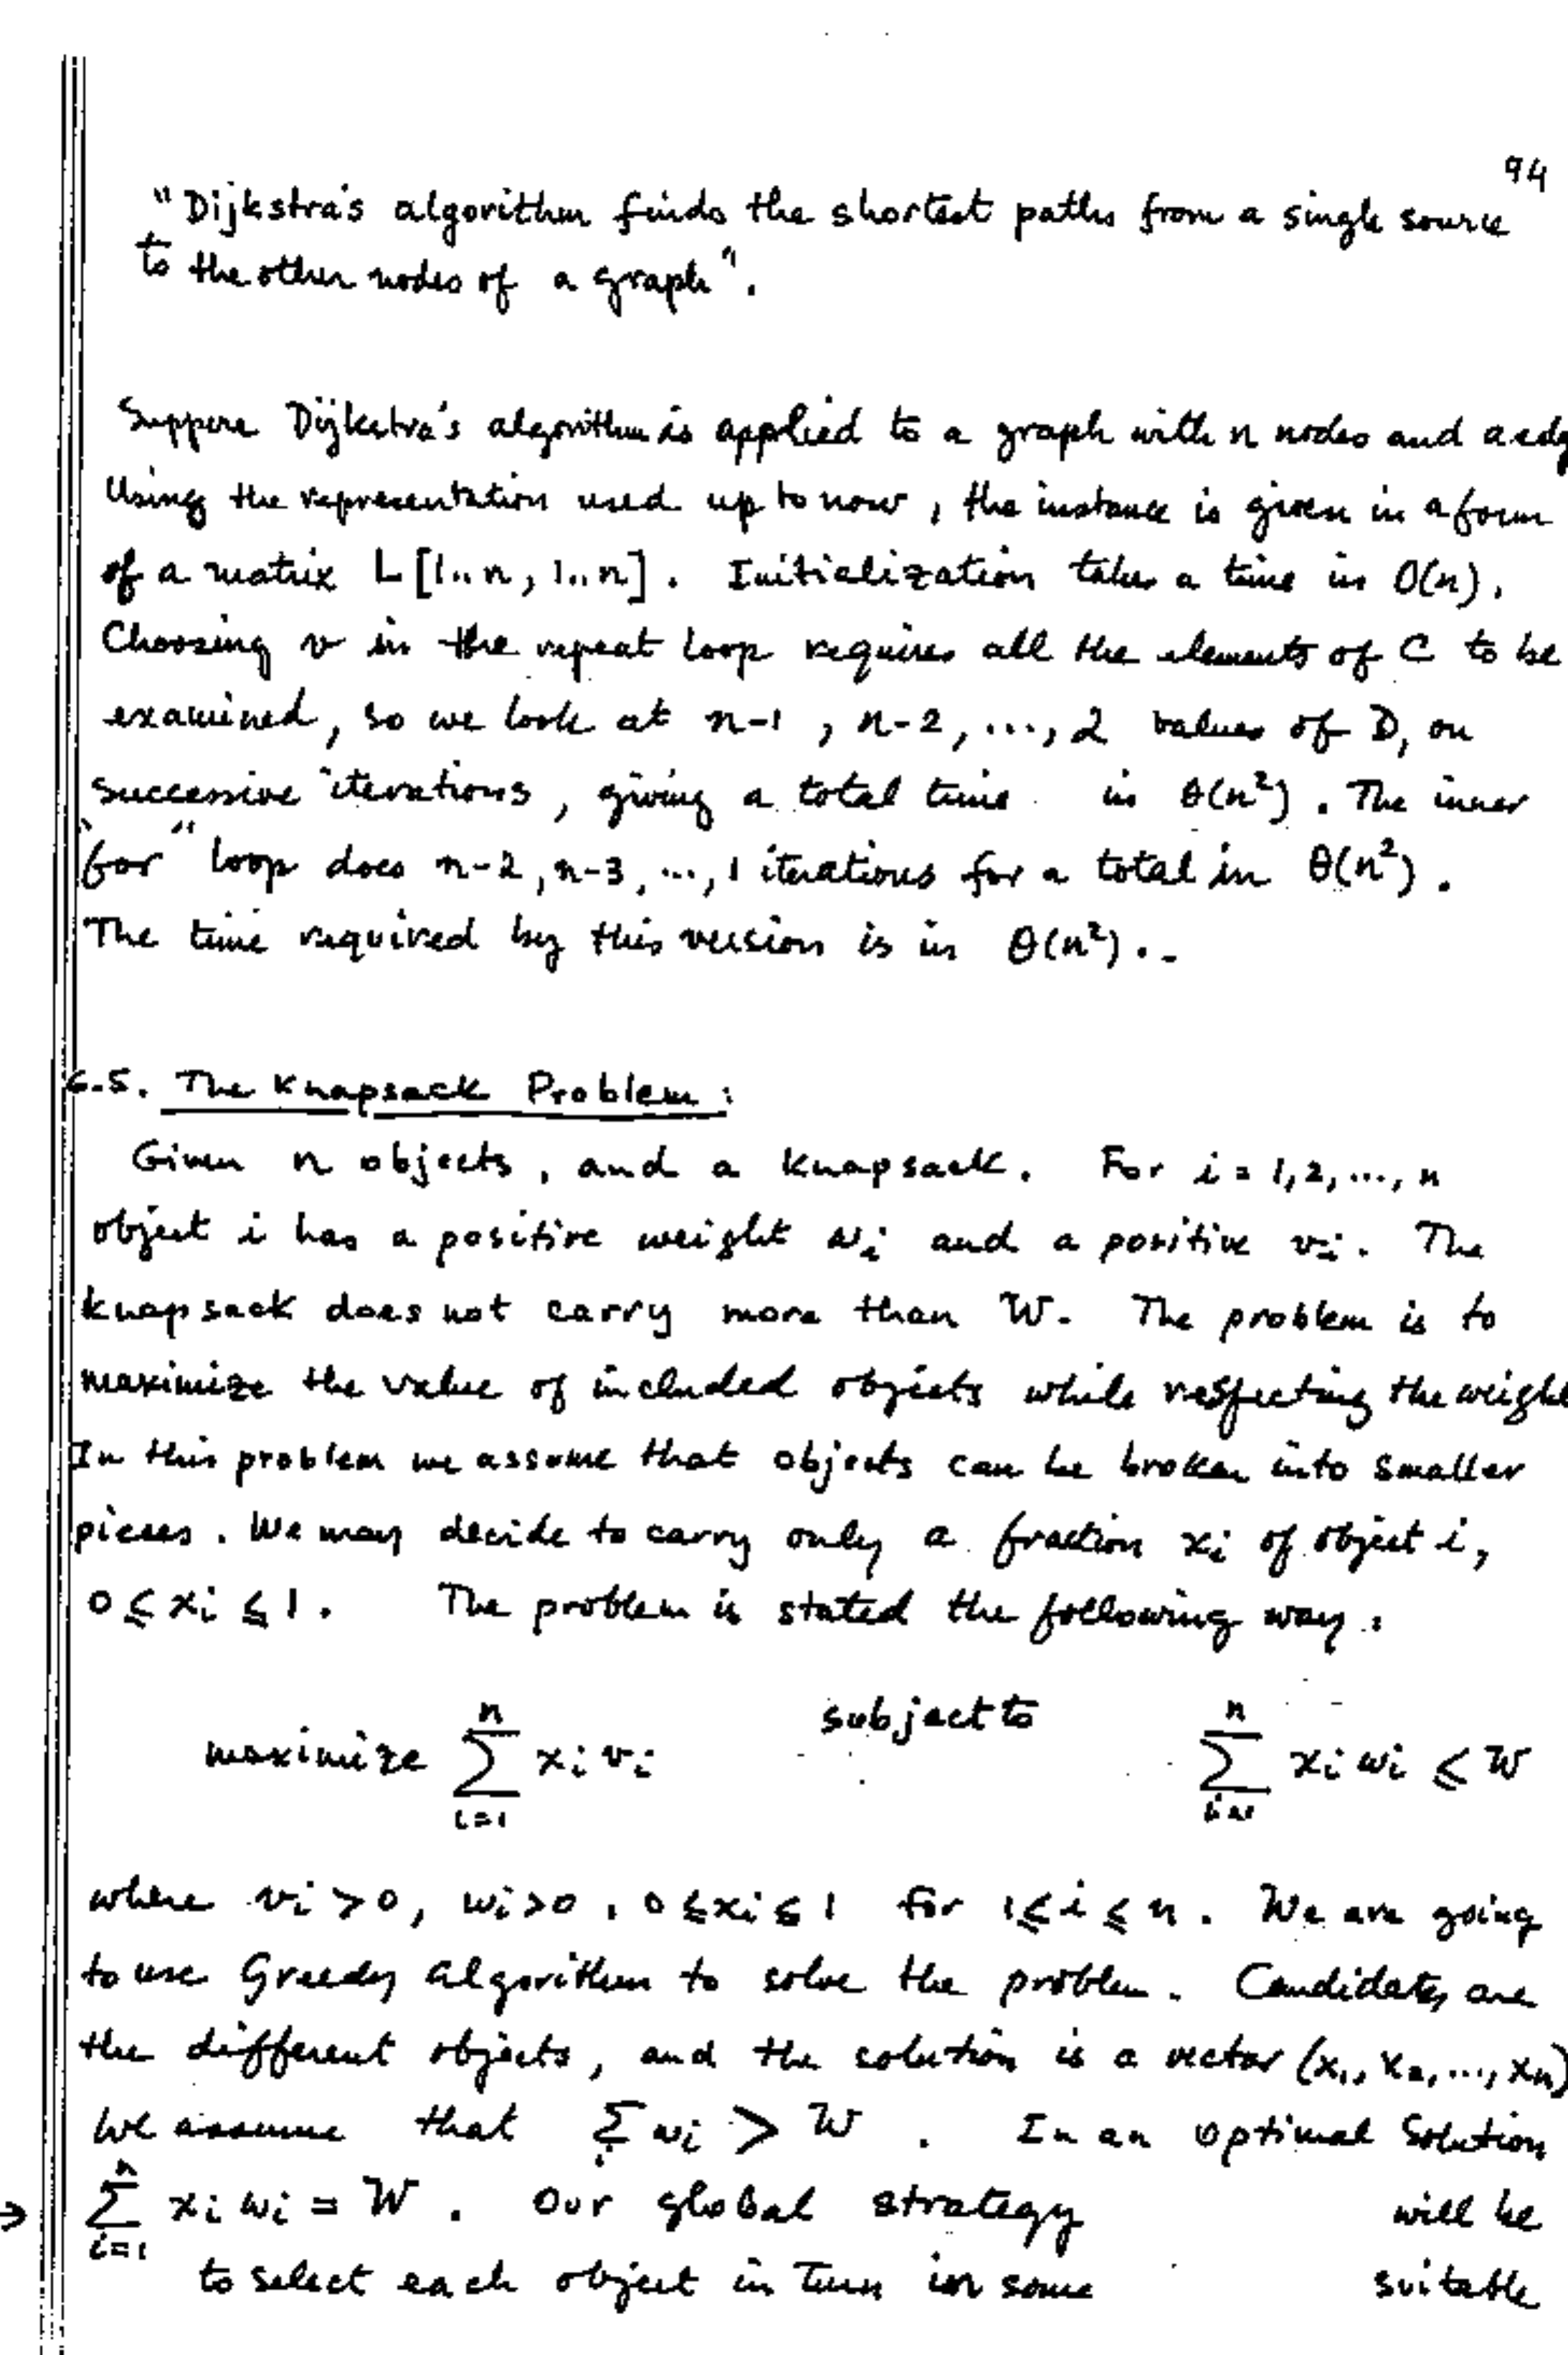 94
"Dijkstra's algorithm finds the shortest paths from a single source
to the other nodes of a graph".
Suppose Dijkstra's algorithm is applied to a graph with n nodes and a edg
Using the representation used up to now, the instance is given in a form
of a matrix L[1..n, 1..n]. Initialization takes a time in O(n).
Choosing v in the repeat loop requires all the elements of C to be
examined, so we look at n-1, n-2, ..., 2 values of D, on
successive iterations, giving a total time in θ(n²). The inner
"for" loop does n-2, n-3, ..., 1 iterations for a total in θ(n²).
The time required by this version is in θ(n²).
6.5. The Knapsack Problem:
Given n objects, and a knapsack. For i = 1,2,...,n
object i has a positive weight wi and a positive vi. The
knapsack does not carry more than W. The problem is to
maximize the value of included objects while respecting the weight
In this problem we assume that objects can be broken into smaller
pieces. We may decide to carry only a fraction xi of object i,
0 ≤ xi ≤ 1. The problem is stated the following way:
maximize ∑_{i=1}^{n} xi vi subject to ∑_{i=1}^{n} xi wi ≤ W
where vi > 0, wi > 0, 0 ≤ xi ≤ 1 for 1 ≤ i ≤ n. We are going
to use Greedy algorithm to solve the problem. Candidates are
the different objects, and the solution is a vector (x1, x2, ..., xn)
We assume that ∑_i wi > W. In an optimal solution
→ ∑_{i=1}^{n} xi wi = W. Our global strategy will be
to select each object in turn in some suitable